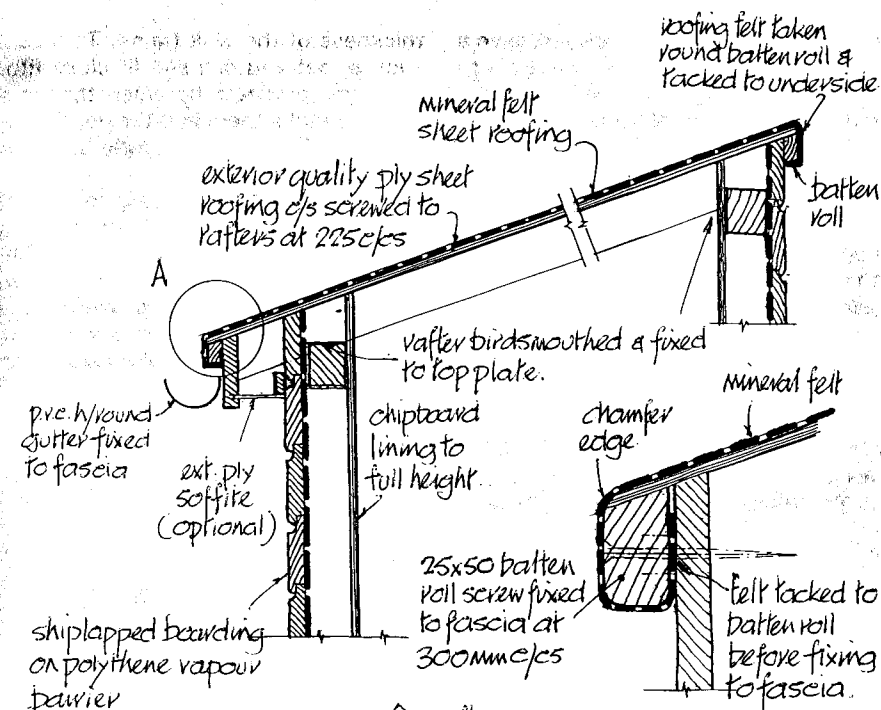 roofing felt taken
round batten roll &
tacked to underside
mineral felt
sheet roofing
exterior quality ply sheet
roofing c/s screwed to
rafters at 225 c/cs
batten
roll
A
rafter birdsmouthed & fixed
to top plate.
p.v.c. h/round
gutter fixed
to fascia
ext. ply
soffite
(optional)
chipboard
lining to
full height
mineral felt
chamfer
edge
25x50 batten
roll screw fixed
to fascia at
300mm c/cs
felt tacked to
batten roll
before fixing
to fascia.
shiplapped boarding
on polythene vapour
barrier